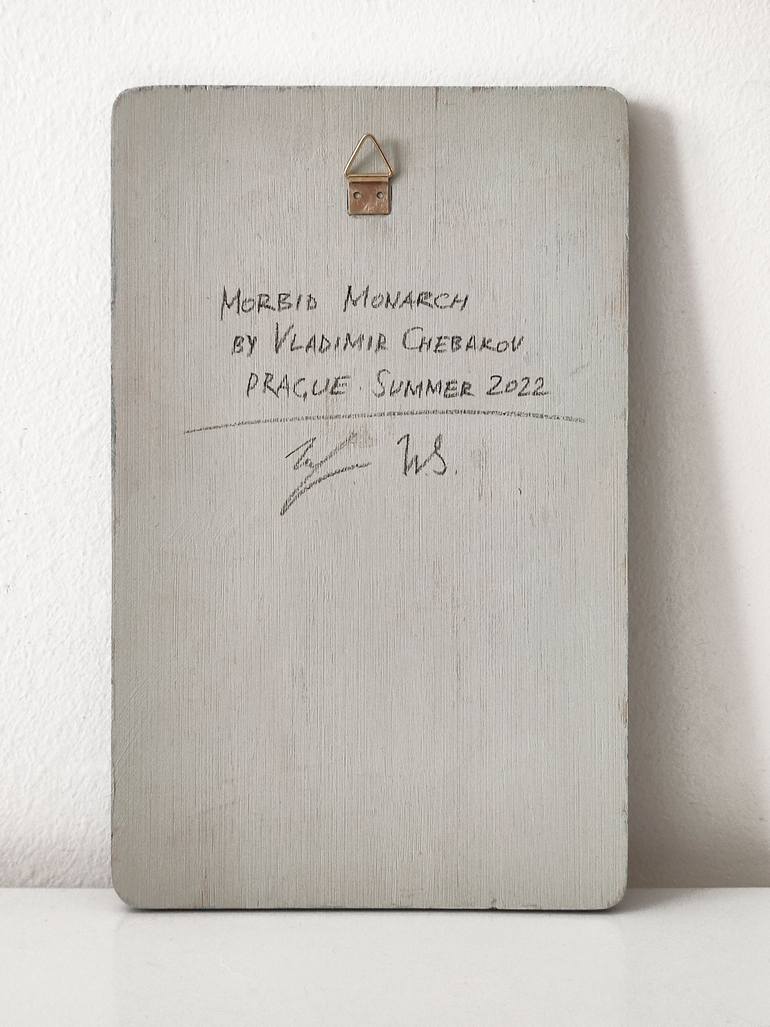 MORBID MONARCH
BY VLADIMIR CHEBAKOV
PRAGUE. SUMMER 2022